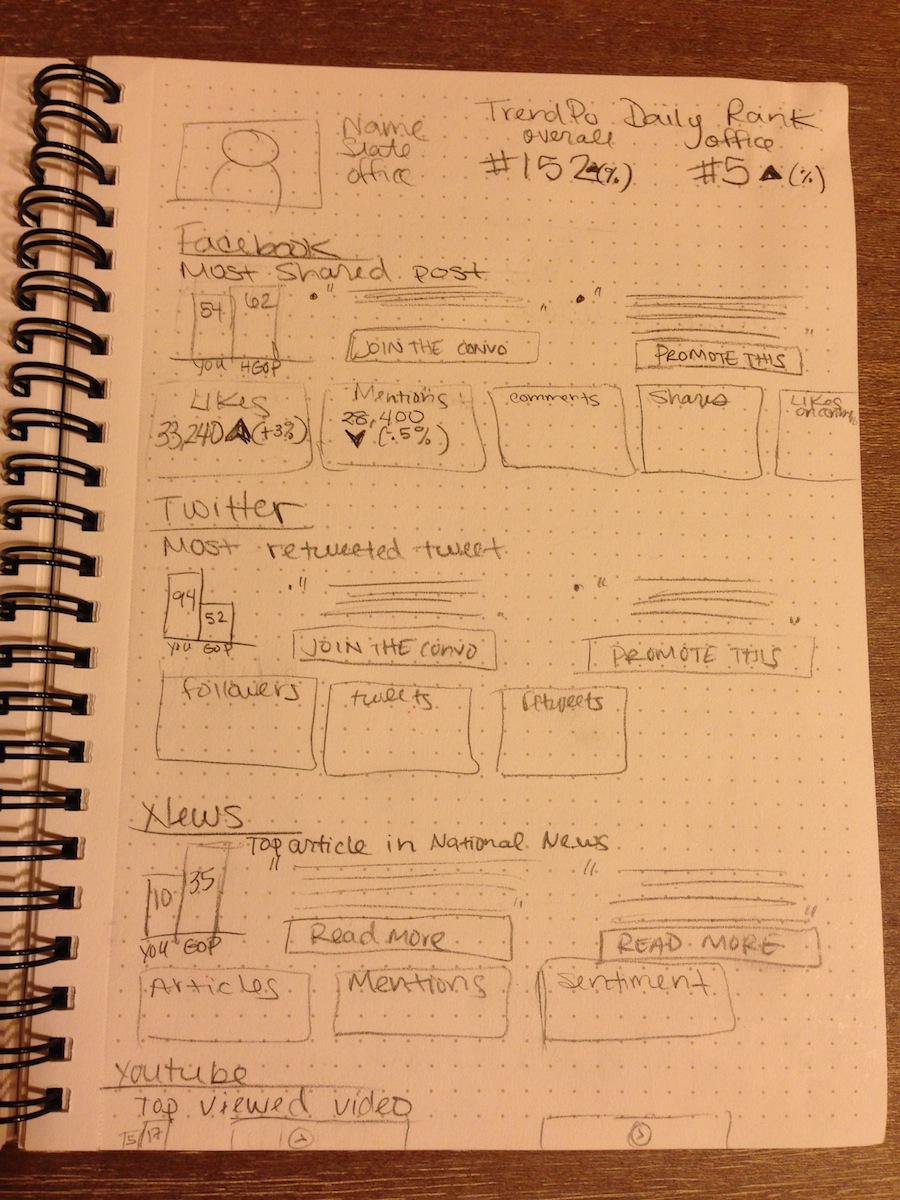 Name
State
office
TrendPo Daily Rank
overall office
#152 ▲(%) #5 ▲(%)
Facebook
Most Shared post
54 62
You HGOP
" "
JOIN THE CONVO
" "
PROMOTE THIS
Likes
33,240 ▲(+3%)
Mentions
28,400
▼ (-.5%)
comments
Shares
Likes
Twitter
Most retweeted tweet
94 52
You GOP
" "
JOIN THE CONVO
" "
PROMOTE THIS
followers
tweets
Retweets
News
Top article in National News
10 35
You GOP
" "
Read More
" "
READ MORE
Articles
Mentions
Sentiment
Youtube
Top viewed video
15 17